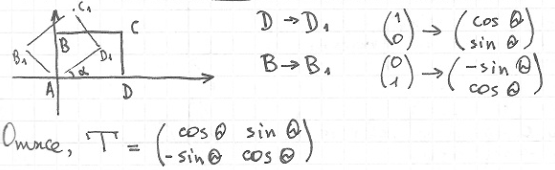 C₁
B C
B₁ D₁
α
A D
D → D₁ (1 0) → (cos Θ sin Θ)
B → B₁ (0 1) → (-sin Θ cos Θ)
Отже, T = (cos Θ sin Θ
-sin Θ cos Θ)